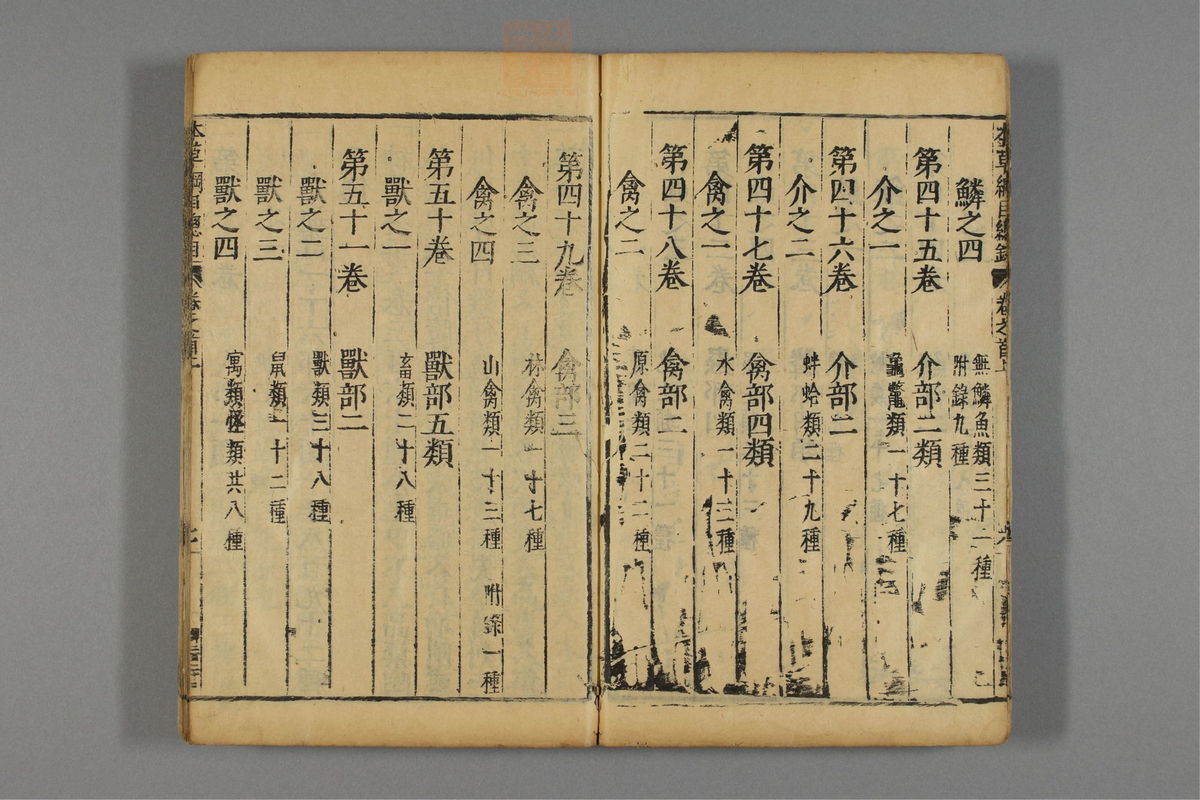 鱗之四 無鱗魚類三十一種
附錄九種
第四十五卷 介部二類
介之一 龜鼈類一十七種
第四十六卷 介部二
介之二 蚌蛤類二十九種
第四十七卷 禽部四類
禽之一 水禽類一十三種
第四十八卷 禽部二
禽之二 原禽類二十二種
第四十九卷 禽部三
禽之三 林禽類一十七種
禽之四 山禽類一十三種 附錄一種
第五十卷 獸部五類
獸之一 畜類二十八種
第五十一卷 獸部二
獸之二 獸類三十八種
獸之三 鼠類一十二種
獸之四 寓類怪類共八種